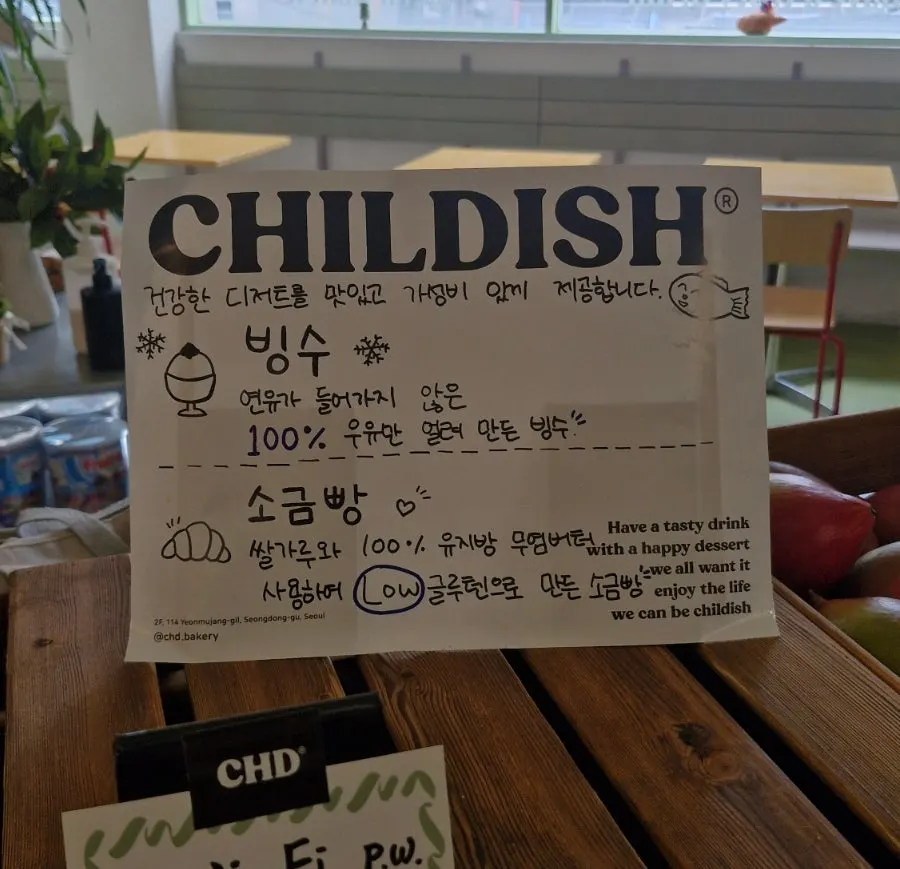 CHILDISH®
건강한 디저트를 맛있고 가성비 있게 제공합니다.
빙수
연유가 들어가지 않은
100% 우유만 얼려 만든 빙수
소금빵
쌀가루와 100% 유지방 무염버터
사용하여 Low 글루텐으로 만든 소금빵
Have a tasty drink
with a happy dessert
we all want it
enjoy the life
we can be childish
2F, 114 Yeonmujang-gil, Seongdong-gu, Seoul
@chd.bakery
CHD®
Fi P.W.